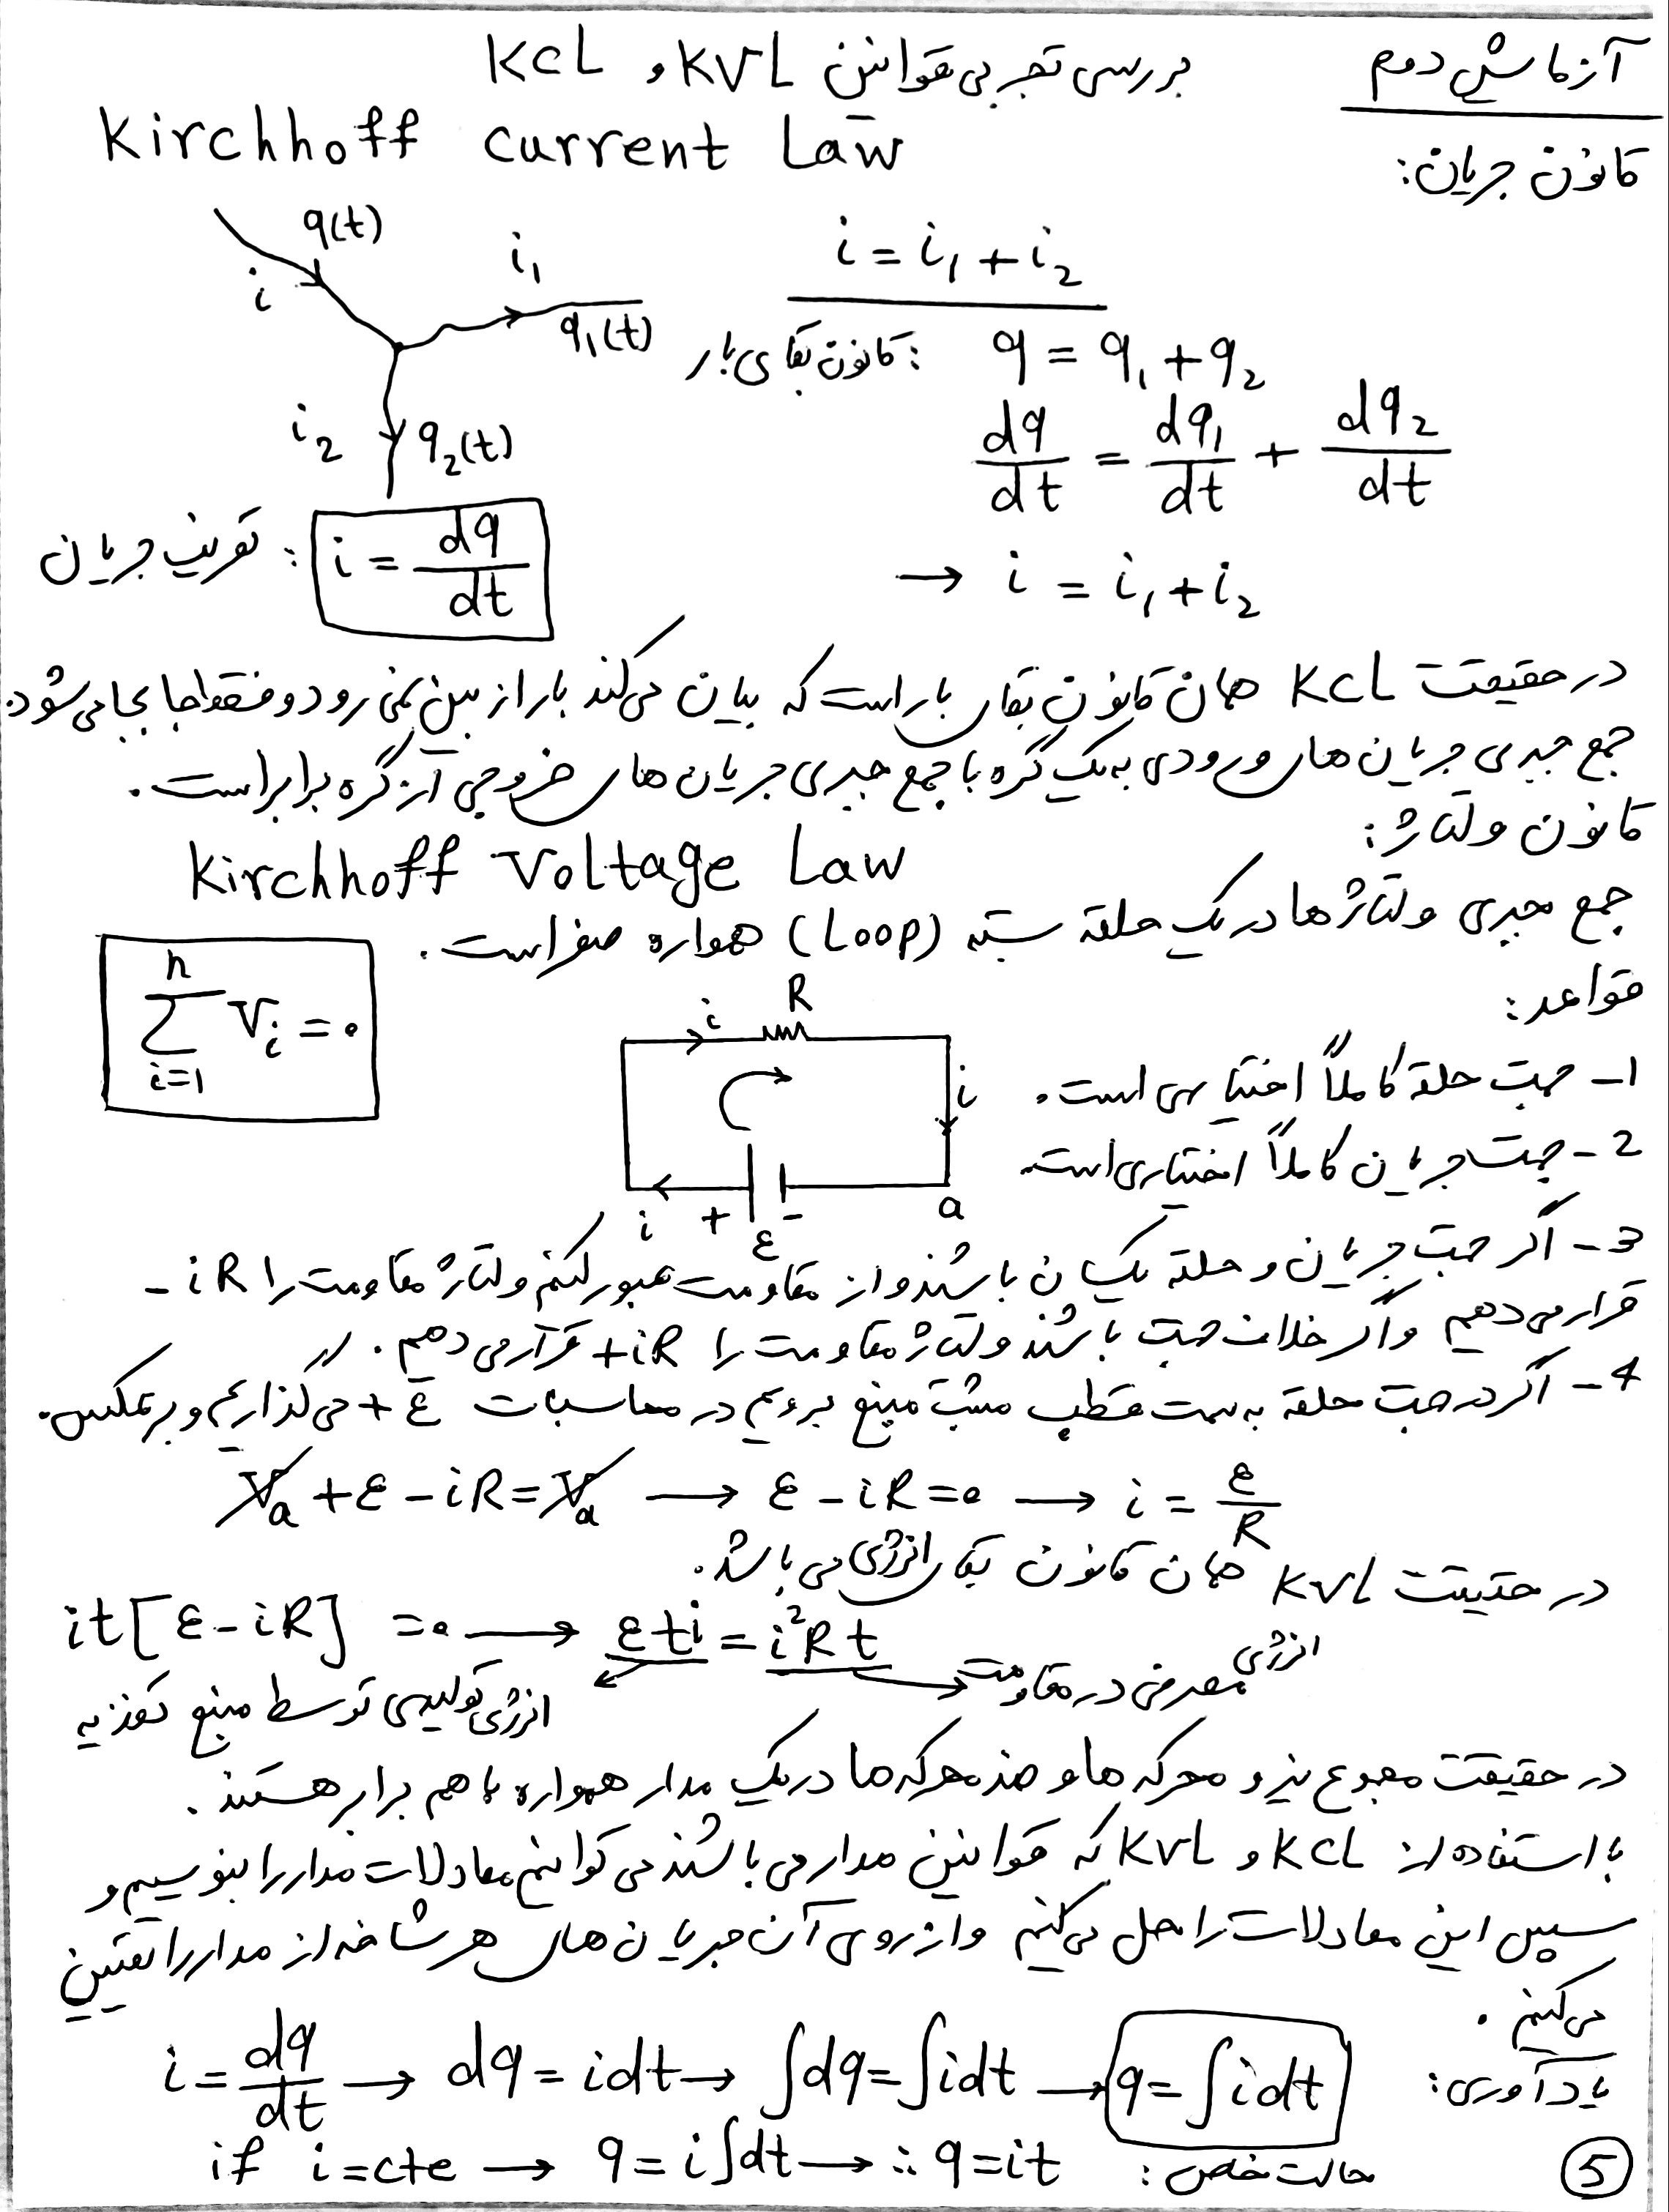 آزمایش دوم
بررسی تجربی قوانین KVL و KCL
Kirchhoff current Law
قانون جریان:
q(t)
i
i₁
q₁(t)
i₂
q₂(t)
i = i₁ + i₂
قانون بقای بار: q = q₁ + q₂
dq/dt = dq₁/dt + dq₂/dt
→ i = i₁ + i₂
تعریف جریان: i = dq/dt
در حقیقت KCL همان قانون بقای بار است که بیان می‌کند بار از بین نمی رود و فقط جا بجا می شود.
جمع جبری جریان های ورودی به یک گره با جمع جبری جریان های خروجی از گره برابر است.
قانون ولتاژ:
Kirchhoff Voltage Law
جمع جبری ولتاژ ها در یک حلقه بسته (Loop) همواره صفر است.
n
∑ Vᵢ = 0
i=1
قواعد:
R
i
i
i
+ ε -
a
1- جهت حلقه کاملاً اختیاری است.
2- جهت جریان کاملاً اختیاری است.
3- اگر جهت جریان و حلقه یکسان باشند و از مقاومت عبور کنیم ولتاژ مقاومت را -iR
قرار می دهیم و اگر خلاف جهت باشند ولتاژ مقاومت را +iR قرار می دهیم.
4- اگر در جهت حلقه به سمت قطب مثبت منبع برویم در محاسبات +ε می گذاریم و برعکس.
Vₐ + ε - iR = Vₐ → ε - iR = 0 → i = ε/R
در حقیقت KVL همان قانون بقای انرژی می باشد.
it[ε - iR] = 0 → εti = i²Rt
انرژی مصرفی در مقاومت
انرژی تولیدی توسط منبع تغذیه
در حقیقت مجموع نیرو محرکه ها و ضد محرکه ها در یک مدار همواره با هم برابر هستند.
با استفاده از KCL و KVL که قوانین مدار می باشند می توانیم معادلات مدار را بنویسیم و
سپس این معادلات را حل می کنیم و از روی آن جریان های هر شاخه از مدار را تعیین
می کنیم.
یادآوری:
i = dq/dt → dq = idt → ∫dq = ∫idt → q = ∫idt
حالت خاص: if i = cte → q = i∫dt → ∴ q = it
5